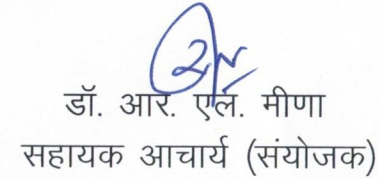 डॉ. आर. एल. मीणा
सहायक आचार्य (संयोजक)